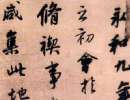 永和九年
之初會於
脩禊事
咸集此地